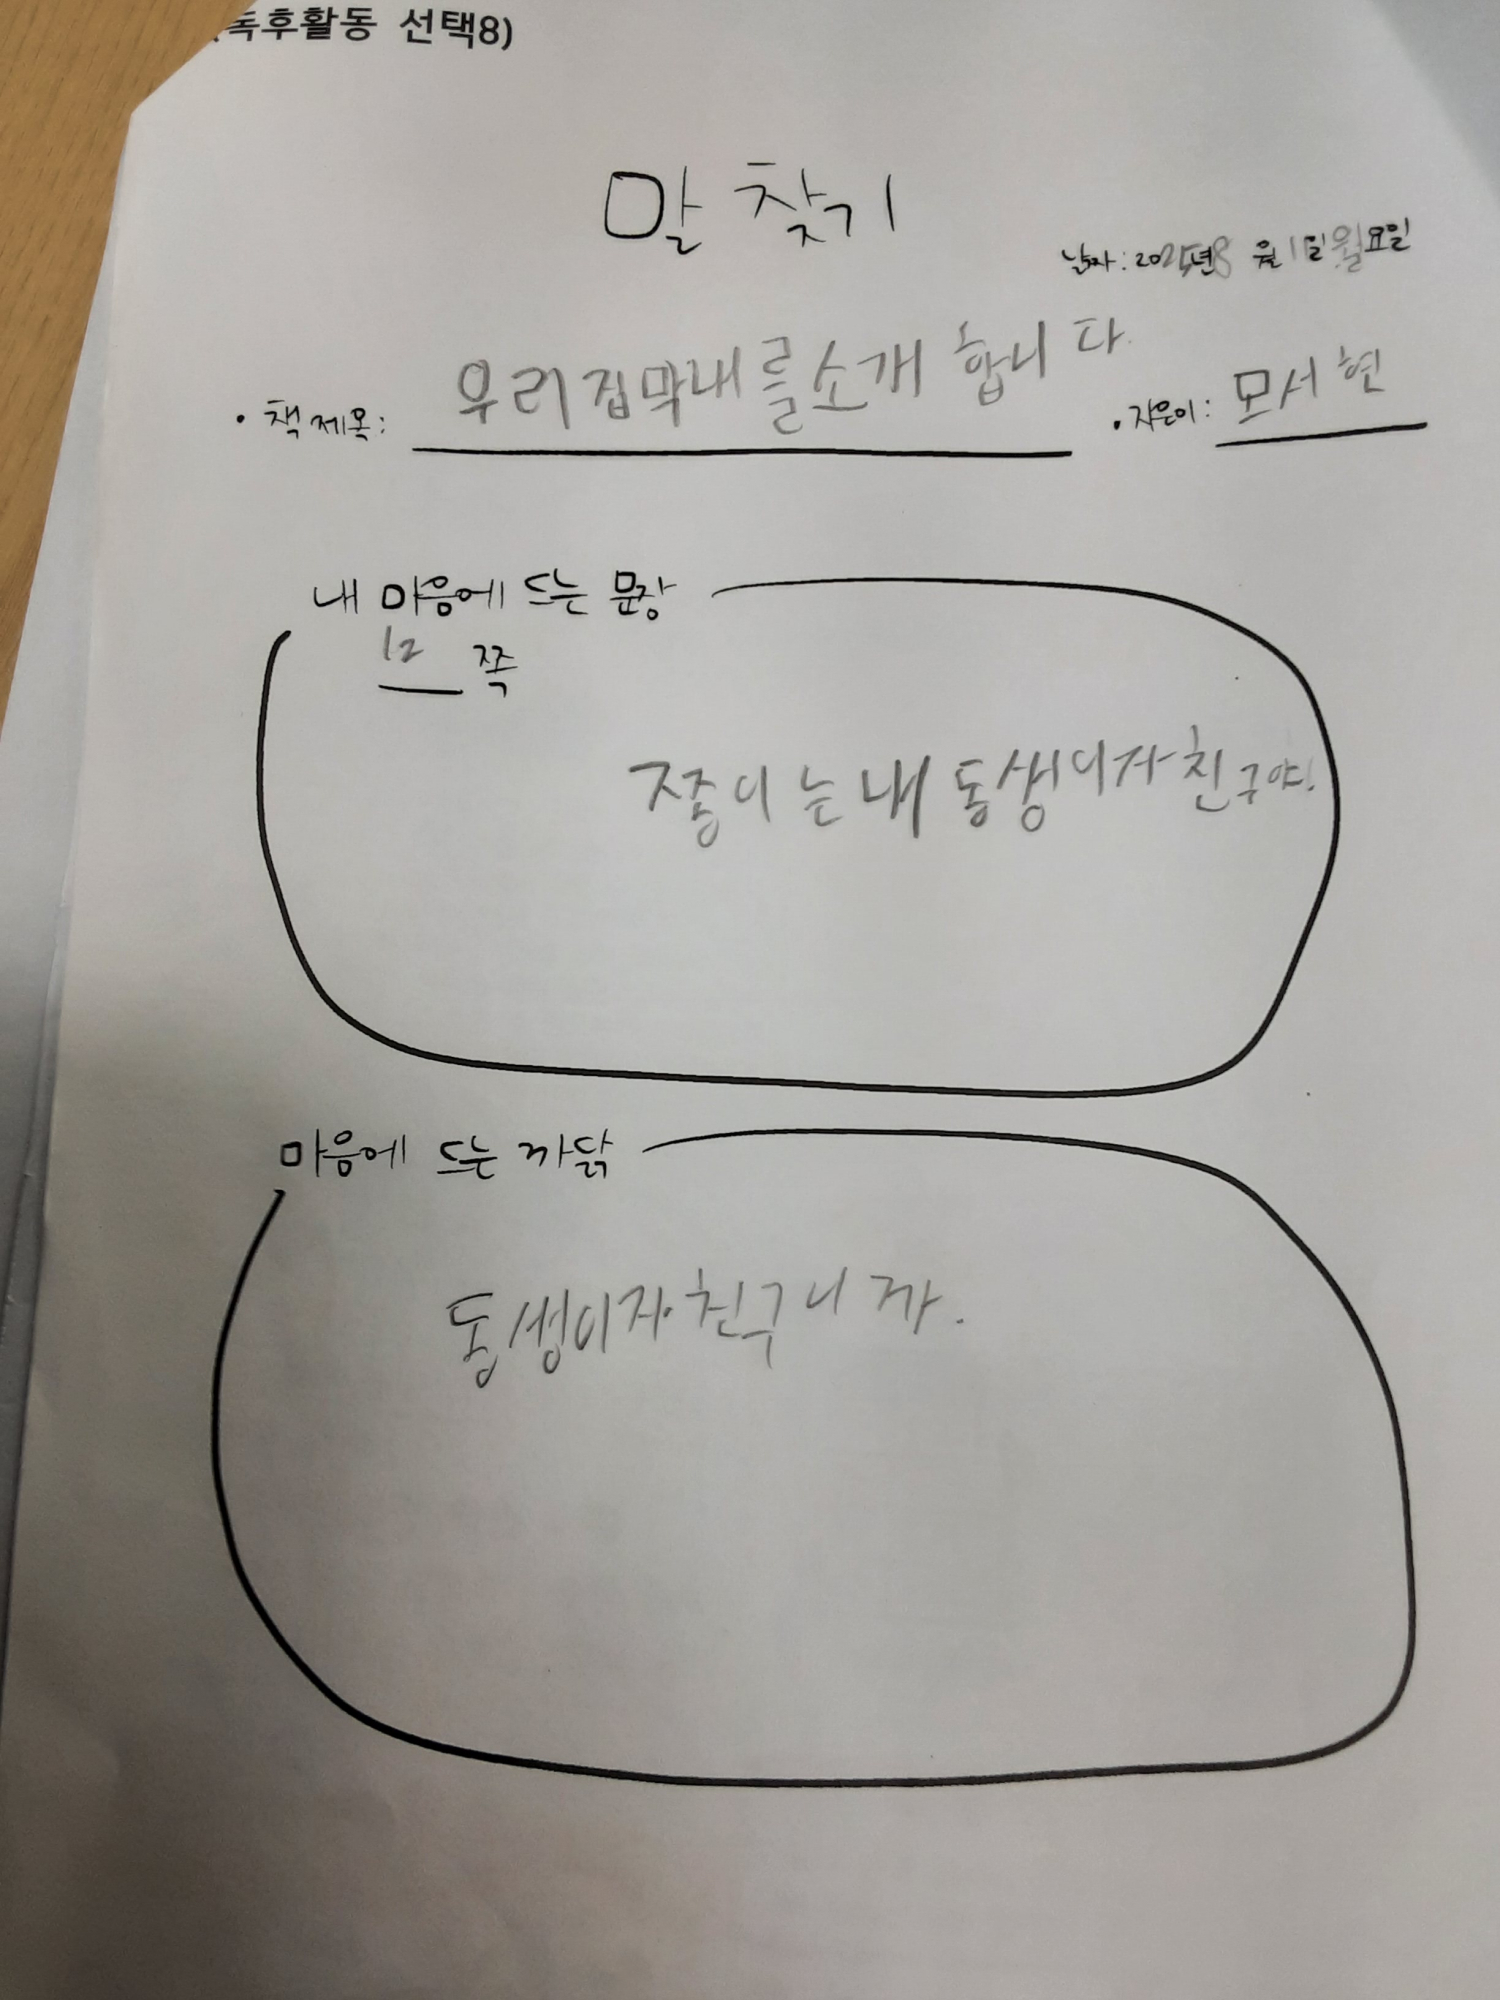 (독후활동 선택8)
말 찾기
날짜: 2025년 8월 1일 월요일
• 책 제목: 우리집막내를소개 합니다. • 지은이: 모서현
내 마음에 드는 문장
12 쪽
쫑이는내 동생이자친구야.
마음에 드는 까닭
동생이자친구니까.